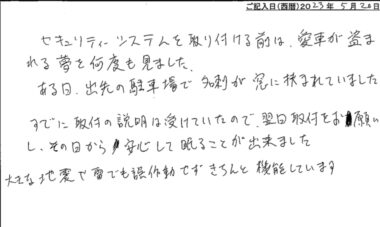 ご記入日(西暦)2023年5月20日
セキュリティーシステムを取り付ける前は、愛車が盗ま
れる夢を何度も見ました。
ある日、出先の駐車場で名刺が窓に挟まれていました
すでに取付の説明は受けていたので、翌日取付をお願い
し、その日から安心して眠ることが出来ました
大きな地震や雷でも誤作動せずきちんと機能しています